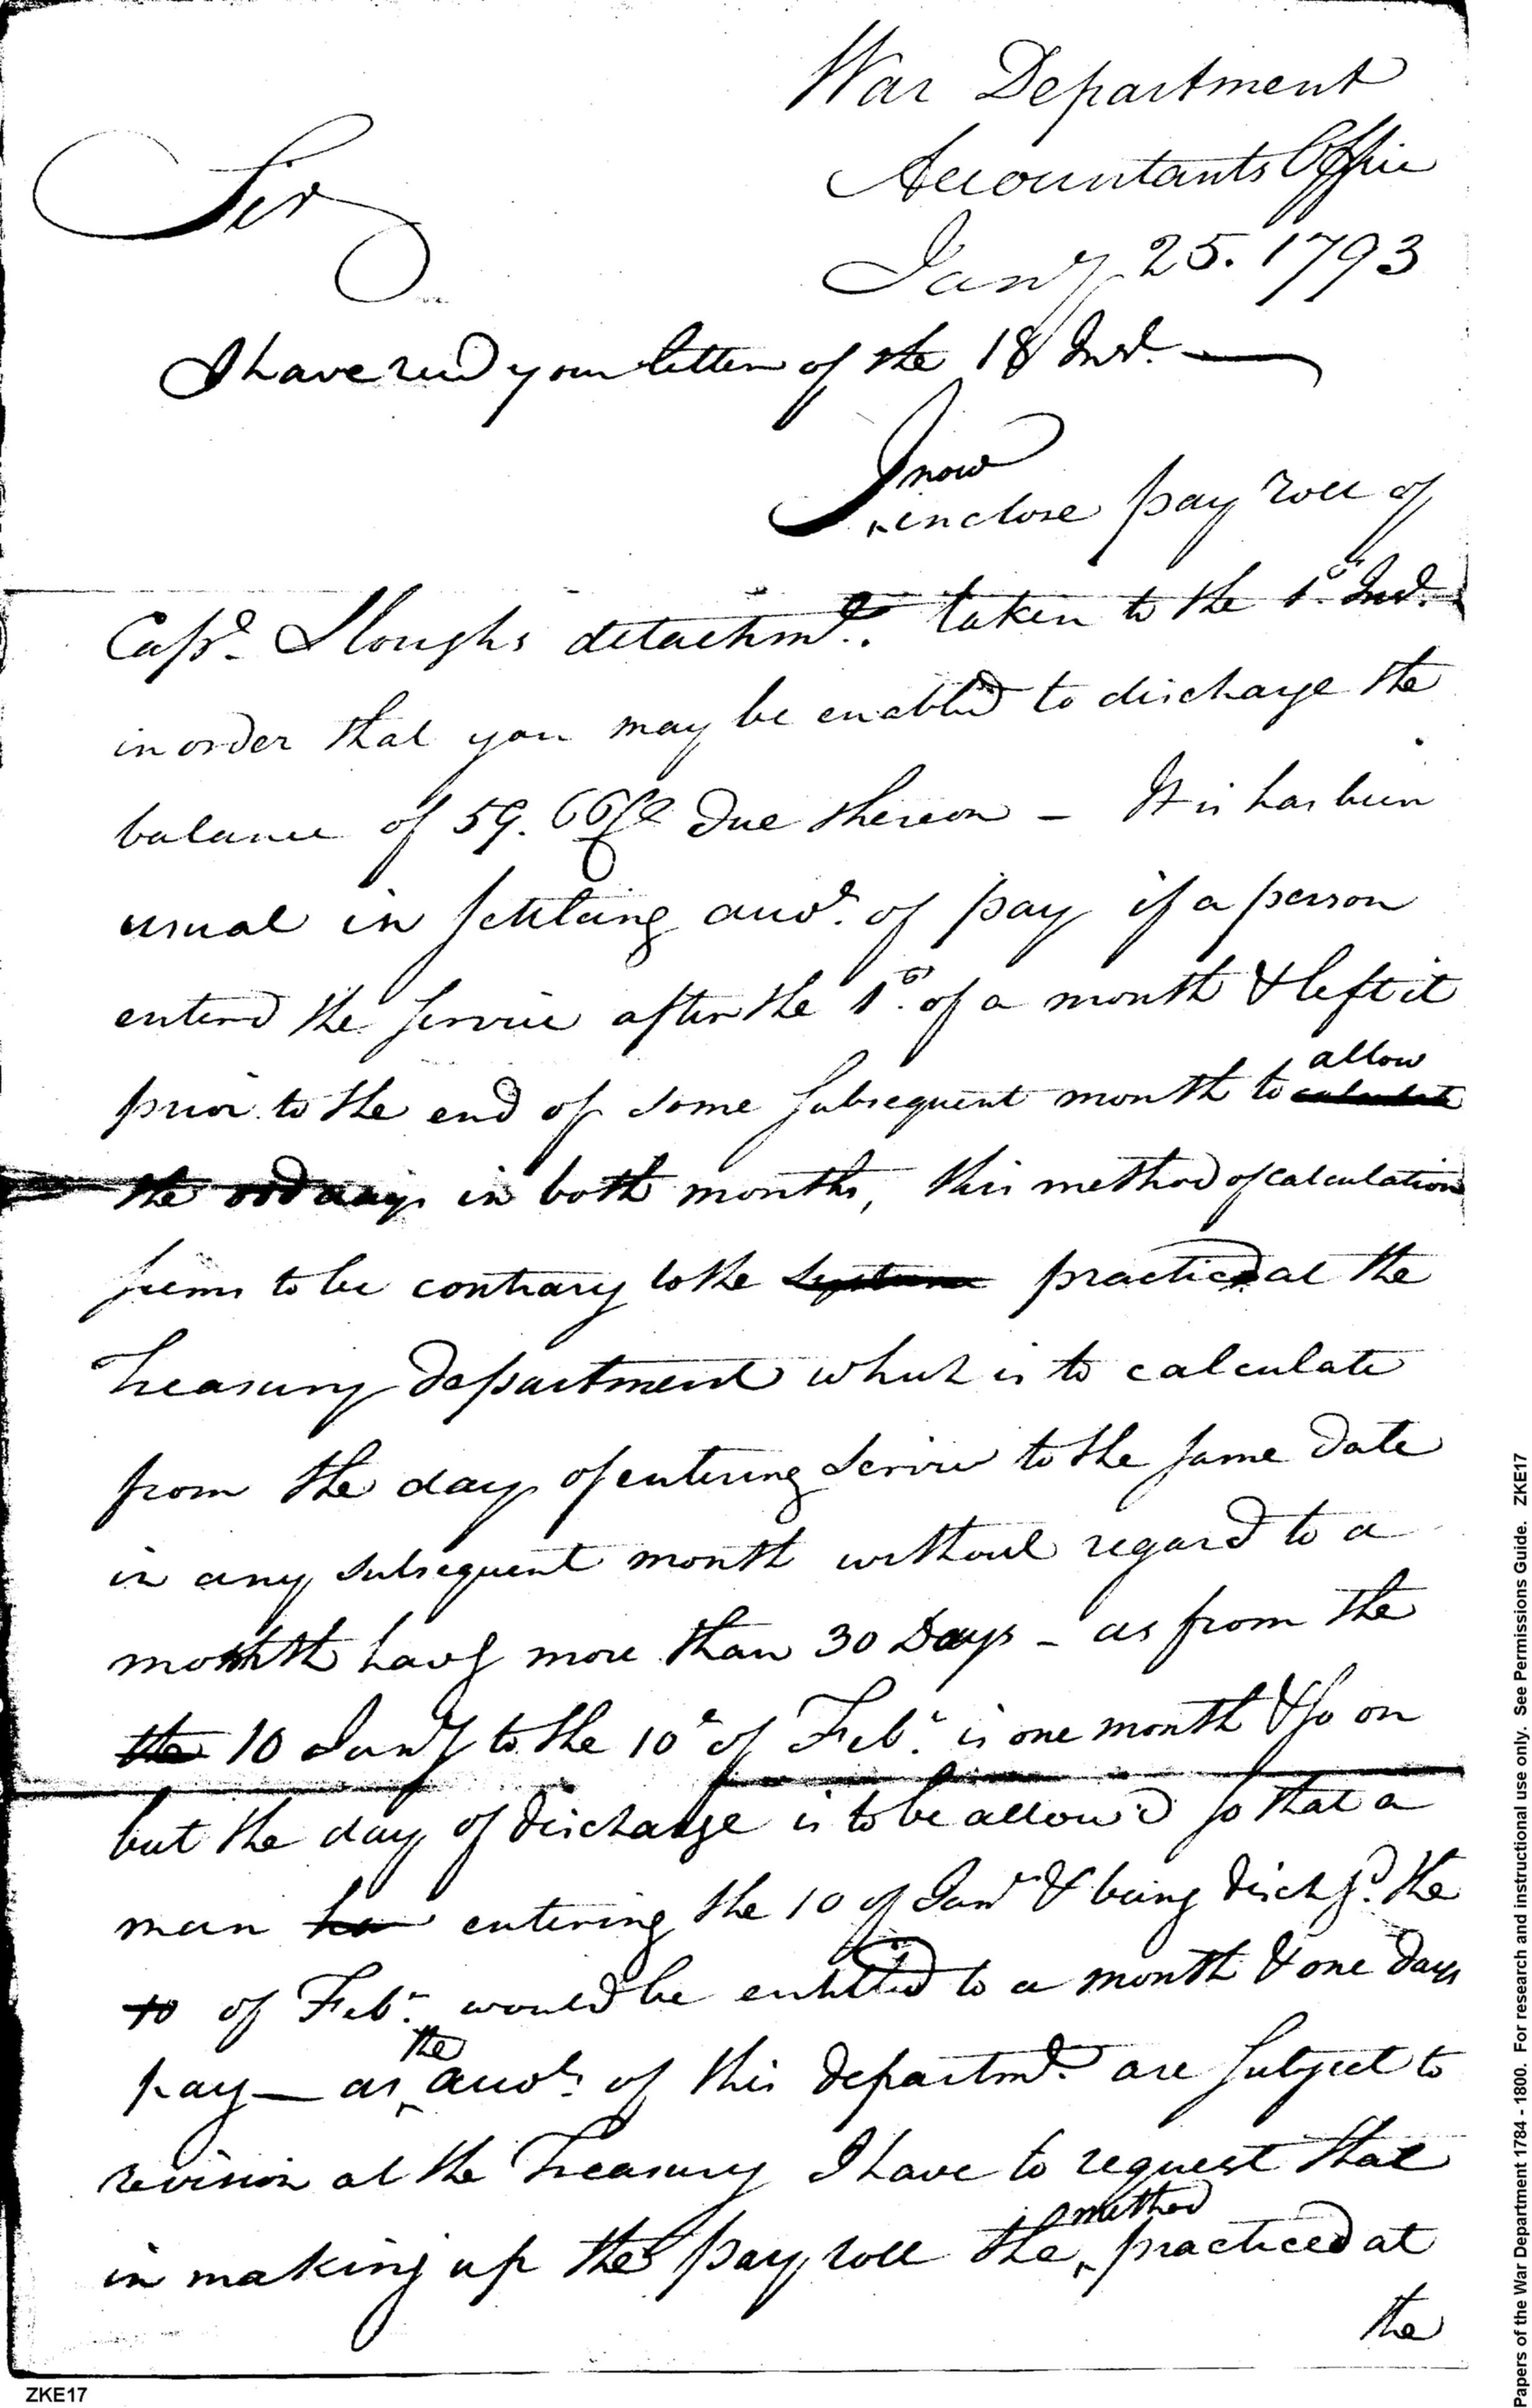 War Department
Accountants Office
Sir
Jany 25. 1793
I have recd your letter of the 18 Inst.
I now
inclose pay roll of
Capt. Sloughs detachmt. taken to the 1st Inst.
in order that you may be enabled to discharge the
balance of 59. 66 due thereon – It is has been
usual in settling accots. of pay if a person
enterd the service after the 1st. of a month & left it
allow
prior to the end of some subsequent month to calculate
the odd days in both months, this method of calculation
seems to be contrary to the systeme practiced at the
Treasury department which is to calculate
from the day of entering service to the same date
in any subsequent month without regard to a
month havg more than 30 Days – as from the
the 10 Jany to the 10th of Feby. is one month & so on
but the day of discharge is to be allow'd so that a
man ha entering the 10 of Jany & being dischgd. the
10 of Feby. would be entitled to a month & one days
the
pay — as accots. of this departmt. are subject to
revision at the Treasury I have to request that
method
in making up the pay roll the practiced at
the
ZKE17
Papers of the War Department 1784 - 1800. For research and instructional use only. See Permissions Guide. ZKE17